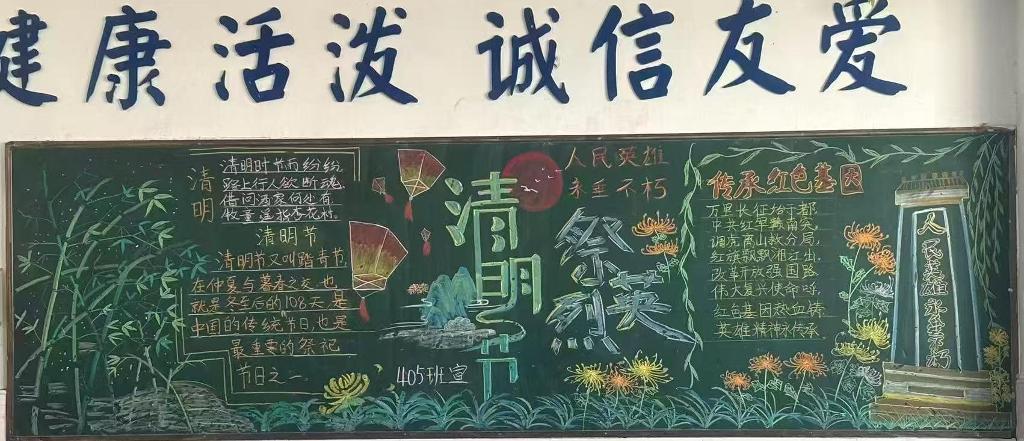 健康活泼 诚信友爱
清明
清明时节雨纷纷
路上行人欲断魂
借问酒家何处有
牧童遥指杏花村
清明节
清明节又叫踏青节
在仲春与暮春之交也
就是冬至后的108天是
中国的传统节日也是
最重要的祭祀
节日之一
清明节
405班宣
人民英雄
永垂不朽
祭英烈
传承红色基因
万里长征始于都
中共红军数
调虎离山敌分局
红旗飘飘湘江出
改革开放强国路
伟大复兴使命呼
红色基因热血铸
英雄精神永传承
人民英雄永垂不朽